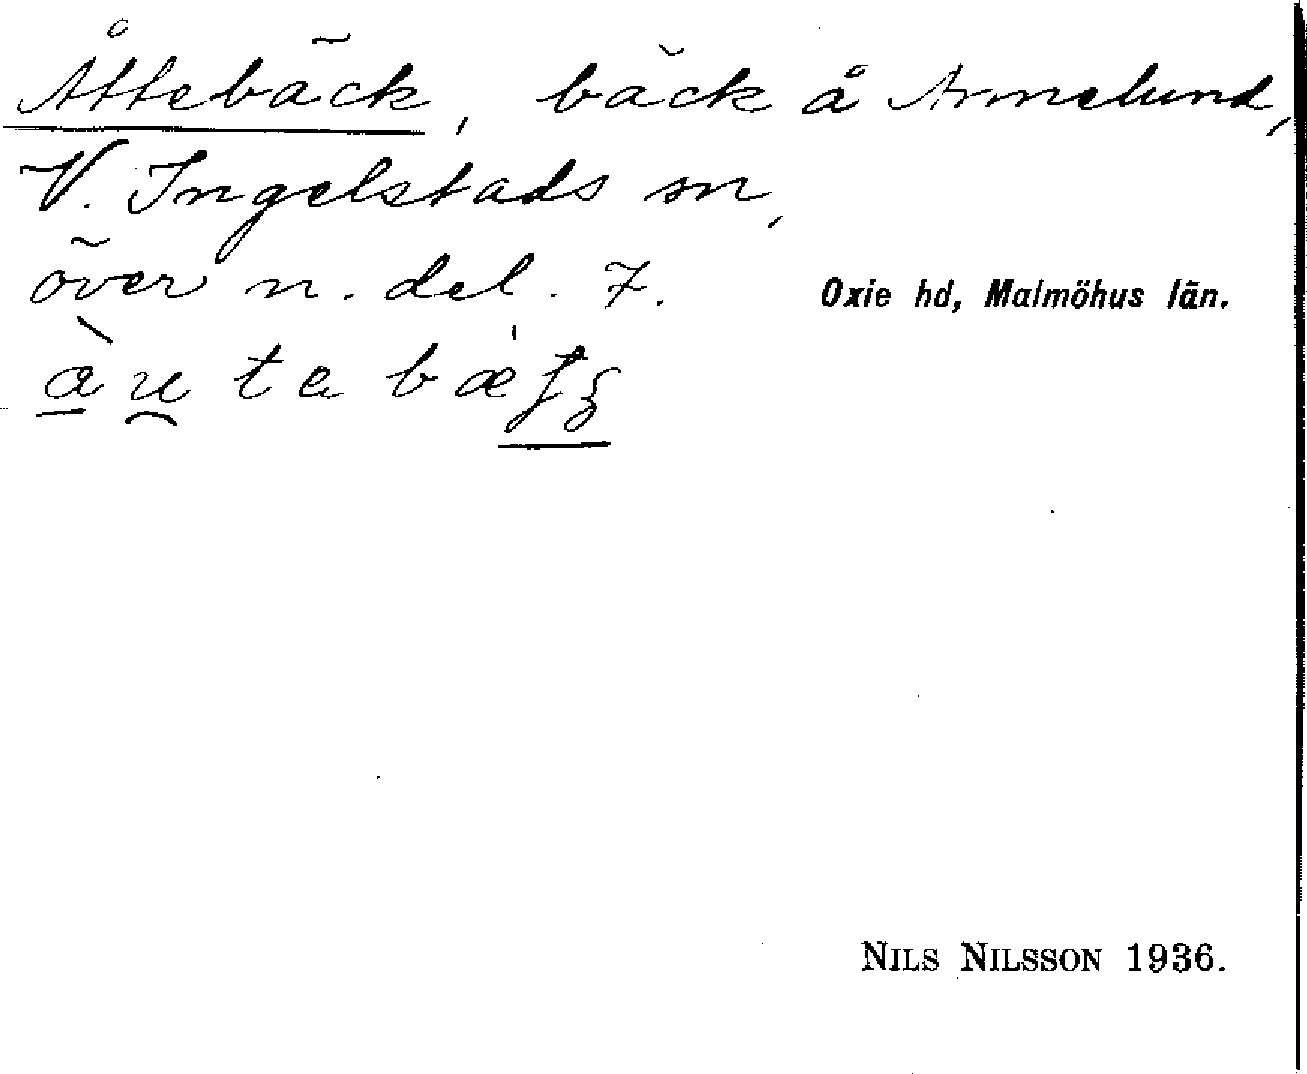 Åttebäck, bäck å Arnelund,
V. Ingelstads sn,
över n. del. 7. Oxie hd, Malmöhus län.
NILS NILSSON 1936.